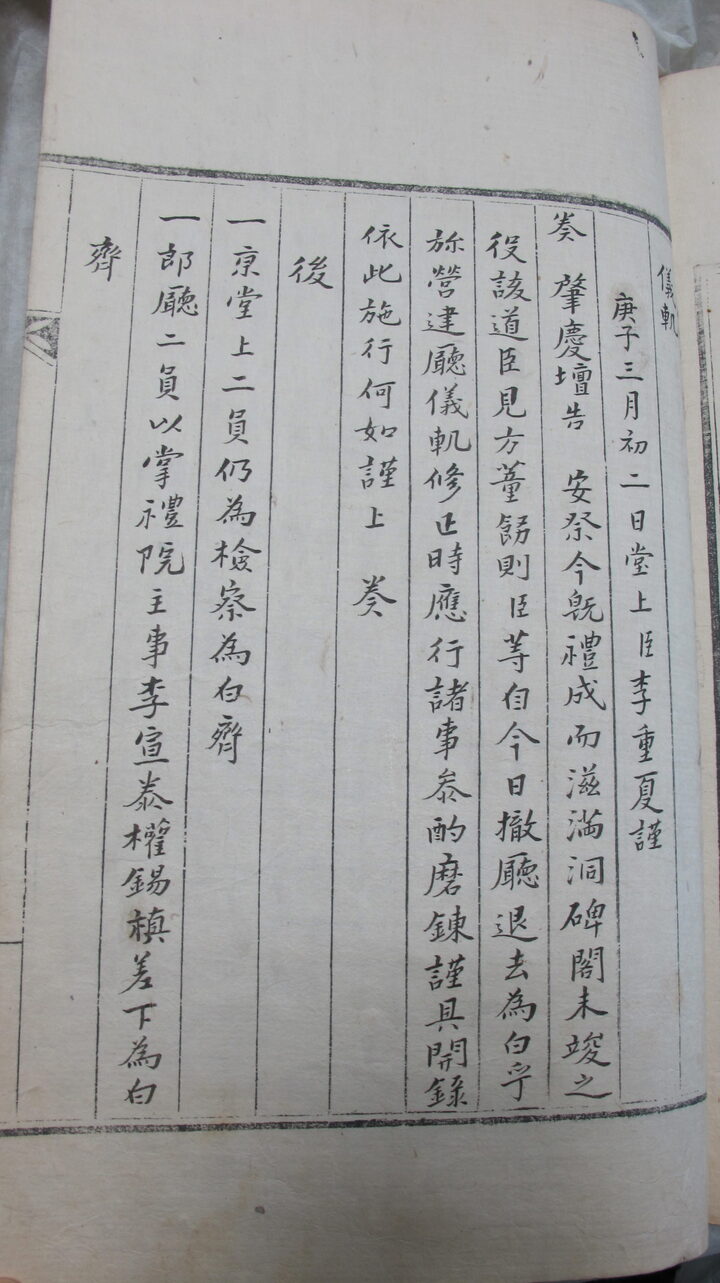 儀軌
庚子三月初二日堂上臣李重夏謹
奏 肇慶壇告 安祭今旣禮成而滋滿洞碑閣未竣之
役該道臣見方董飭則臣等自今日撤廳退去為白乎
旀營建廳儀軌修正時應行諸事叅酌磨鍊謹具開錄
依此施行何如謹上 奏
後
一京堂上二員仍為檢察為白齊
一郎廳二員以掌禮院主事李宣泰權錫禛差下為白
齊